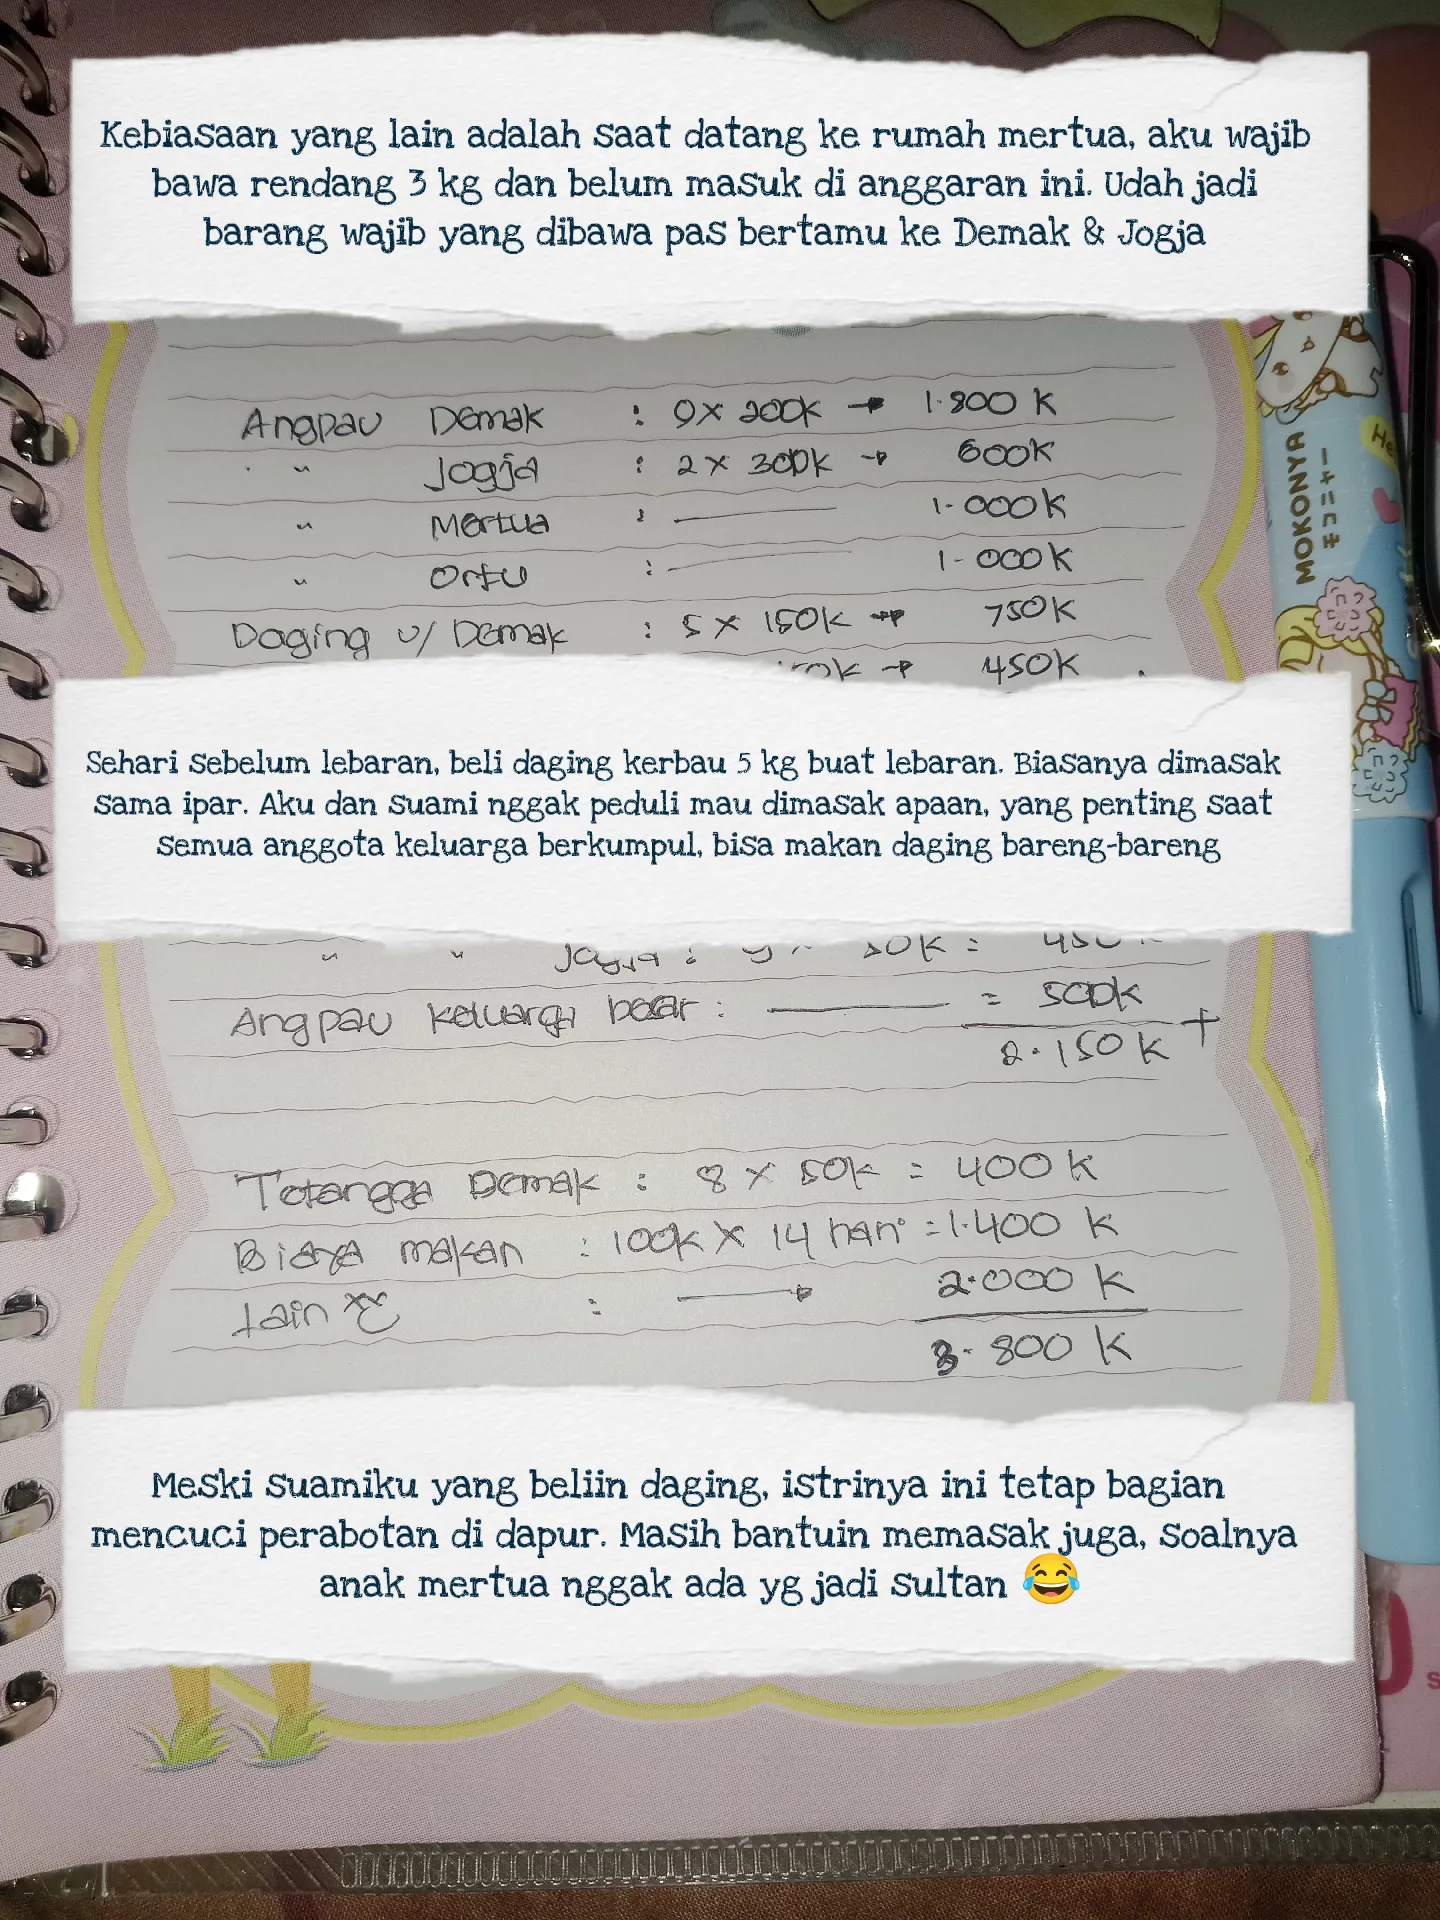 Kebiasaan yang lain adalah saat datang ke rumah mertua, aku wajib
bawa rendang 3 kg dan belum masuk di anggaran ini. Udah jadi
barang wajib yang dibawa pas bertamu ke Demak & Jogja
Angpau Demak : 9 x 200k → 1.800 K
" Jogja : 2 x 300k → 600K
" Mertua : 1.000K
" Ortu : 1.000K
Daging u/ Demak : 5 x 150K → 750K
→ 450K
Sehari sebelum lebaran, beli daging kerbau 5 kg buat lebaran. Biasanya dimasak
sama ipar. Aku dan suami nggak peduli mau dimasak apaan, yang penting saat
semua anggota keluarga berkumpul, bisa makan daging bareng-bareng
" " Jogja : 9 x 50K = 450K
Angpau keluarga besar : = 500k
2.150 K +
Tetangga Demak : 8 x 50k = 400 K
Biaya makan : 100k x 14 hari = 1.400 K
Lain : → 2.000 K
3.800 K
Meski suamiku yang beliin daging, istrinya ini tetap bagian
mencuci perabotan di dapur. Masih bantuin memasak juga, soalnya
anak mertua nggak ada yg jadi sultan 😂
MOKONYA
モコニャー
He